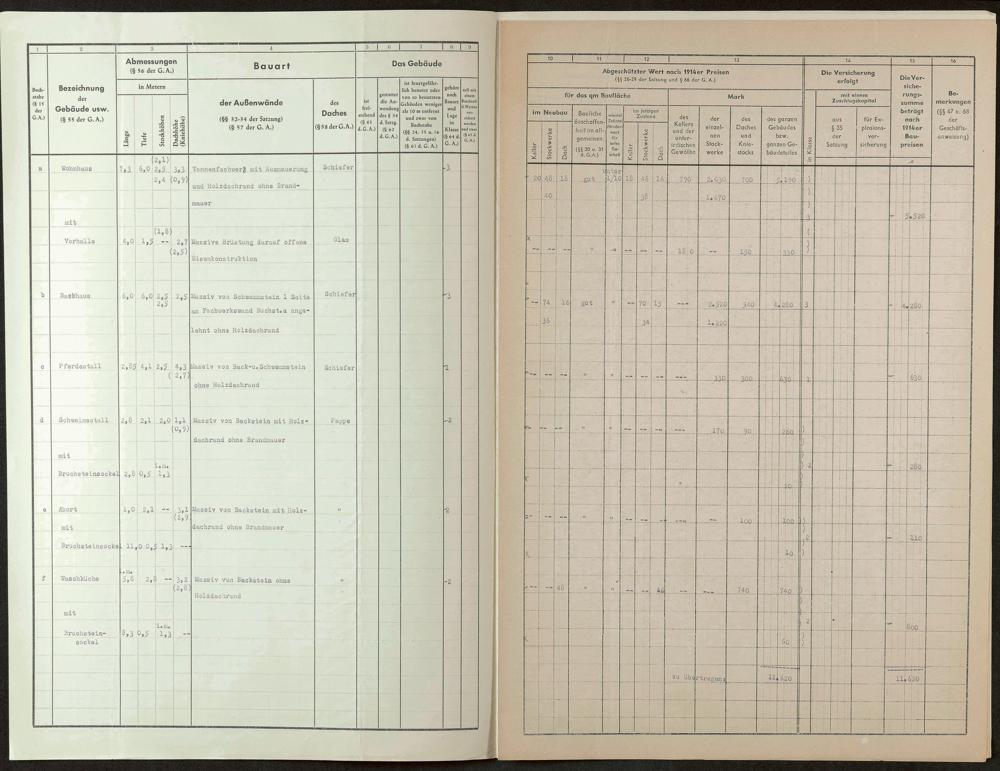 1 2 3 4 5 6 7 8 9
Buch-
stabe
(§ 55
der
G.A.)
Bezeichnung
der
Gebäude usw.
(§ 55 der G.A.)
Abmessungen
(§ 56 der G.A.)
in Metern
Länge
Tiefe
Stockhöhen
Dachhöhe
(Kniehöhe)
Bauart
der Außenwände
(§§ 32-34 der Satzung)
(§ 57 der G.A.)
des
Daches
(§ 58 der G.A.)
Das Gebäude
ist
frei-
stehend
(§ 61
d. G.A.)
gehört
nach
Bauart
und
Lage
in
Klasse
a Wohnhaus 7,3 6,0 2,5 3,3 Tannenfachwerk mit Ausmauerung Schiefer -3
(2,1)
2,4 (0,9) und Holzdachrand ohne Brand-
mauer
mit
(1,8)
Vorhalle 4,0 1,5 -- 2,7 Massive Brüstung darauf offene Glas
(2,5)
Eisenkonstruktion
b Backhaus 6,0 6,0 2,5 2,5 Massiv von Schwemmstein 1 Seite Schiefer -3
2,5 an Fachwerkswand Buchst.a ange-
lehnt ohne Holzdachrand
c Pferdestall 2,85 4,1 2,5 4,3 Massiv von Back-u.Schwemmstein Schiefer
(2,7)
ohne Holzdachrand
d Schweinestall 2,8 2,1 2,0 1,1 Massiv von Backstein mit Holz- Pappe -2
(0,9)
dachrand ohne Brandmauer
mit
i.m.
Bruchsteinsockel 2,8 0,5 1,3
e Abort 1,0 2,1 -- 3,1 Massiv von Backstein mit Holz- " -2
(2,9)
mit dachrand ohne Brandmauer
Bruchsteinsockel 11,0 0,5 1,3 ---
f Waschküche 5,8 2,8 -- 3,2 Massiv von Backstein ohne " -2
(2,8)
Holzdachrand
mit
i.m.
Bruchstein- 8,3 0,5 1,3 --
sockel
10 11 12 13 14 15 16
Abgeschätzter Wert nach 1914er Preisen
(§§ 26-29 der Satzung und § 66 der G. A.)
für das qm Baufläche
Mark
im Neubau
Keller
Stockwerke
Dach
Bauliche
Beschaffen-
heit im all-
gemeinen
(§§ 30 u. 31
d. G.A.)
im jetzigen
Zustand
Keller
Stockwerke
Dach
des
Kellers
und der
unter-
irdischen
Gewölbe
der
einzel-
nen
Stock-
werke
des
Daches
und
Knie-
stocks
des ganzen
Gebäudes
bzw.
ganzen Ge-
bäudeteiles
in Klasse
Die Versicherung
erfolgt
mit einem
Zuschlagskapital
aus
§ 35
der
Satzung
für Ex-
plosions-
ver-
sicherung
Die Ver-
siche-
rungs-
summe
beträgt
nach
1914er
Bau-
preisen
Be-
merkungen
(§§ 47 u. 68
der
Geschäfts-
anweisung)
20 48 18 gut 1/10 18 46 16 790 2.030 700 5.190
40 38 1.670
- 5.520
-- -- -- " " -- -- -- 180 -- 150 330
-- 74 16 gut " -- 70 15 --- 2.520 540 4.280 3 - 4.280
36 34 1.220
-- -- -- " " -- -- -- --- 330 300 630 1 - 630
-- -- -- " " -- -- -- --- 170 90 260
2 - 280
-- -- -- " " -- -- -- --- -- 100 100
2 - 110
10
-- -- 48 " " -- -- 46 -- --- 740 740
2 - 800
60
zu übertragen: 11.620 11.620